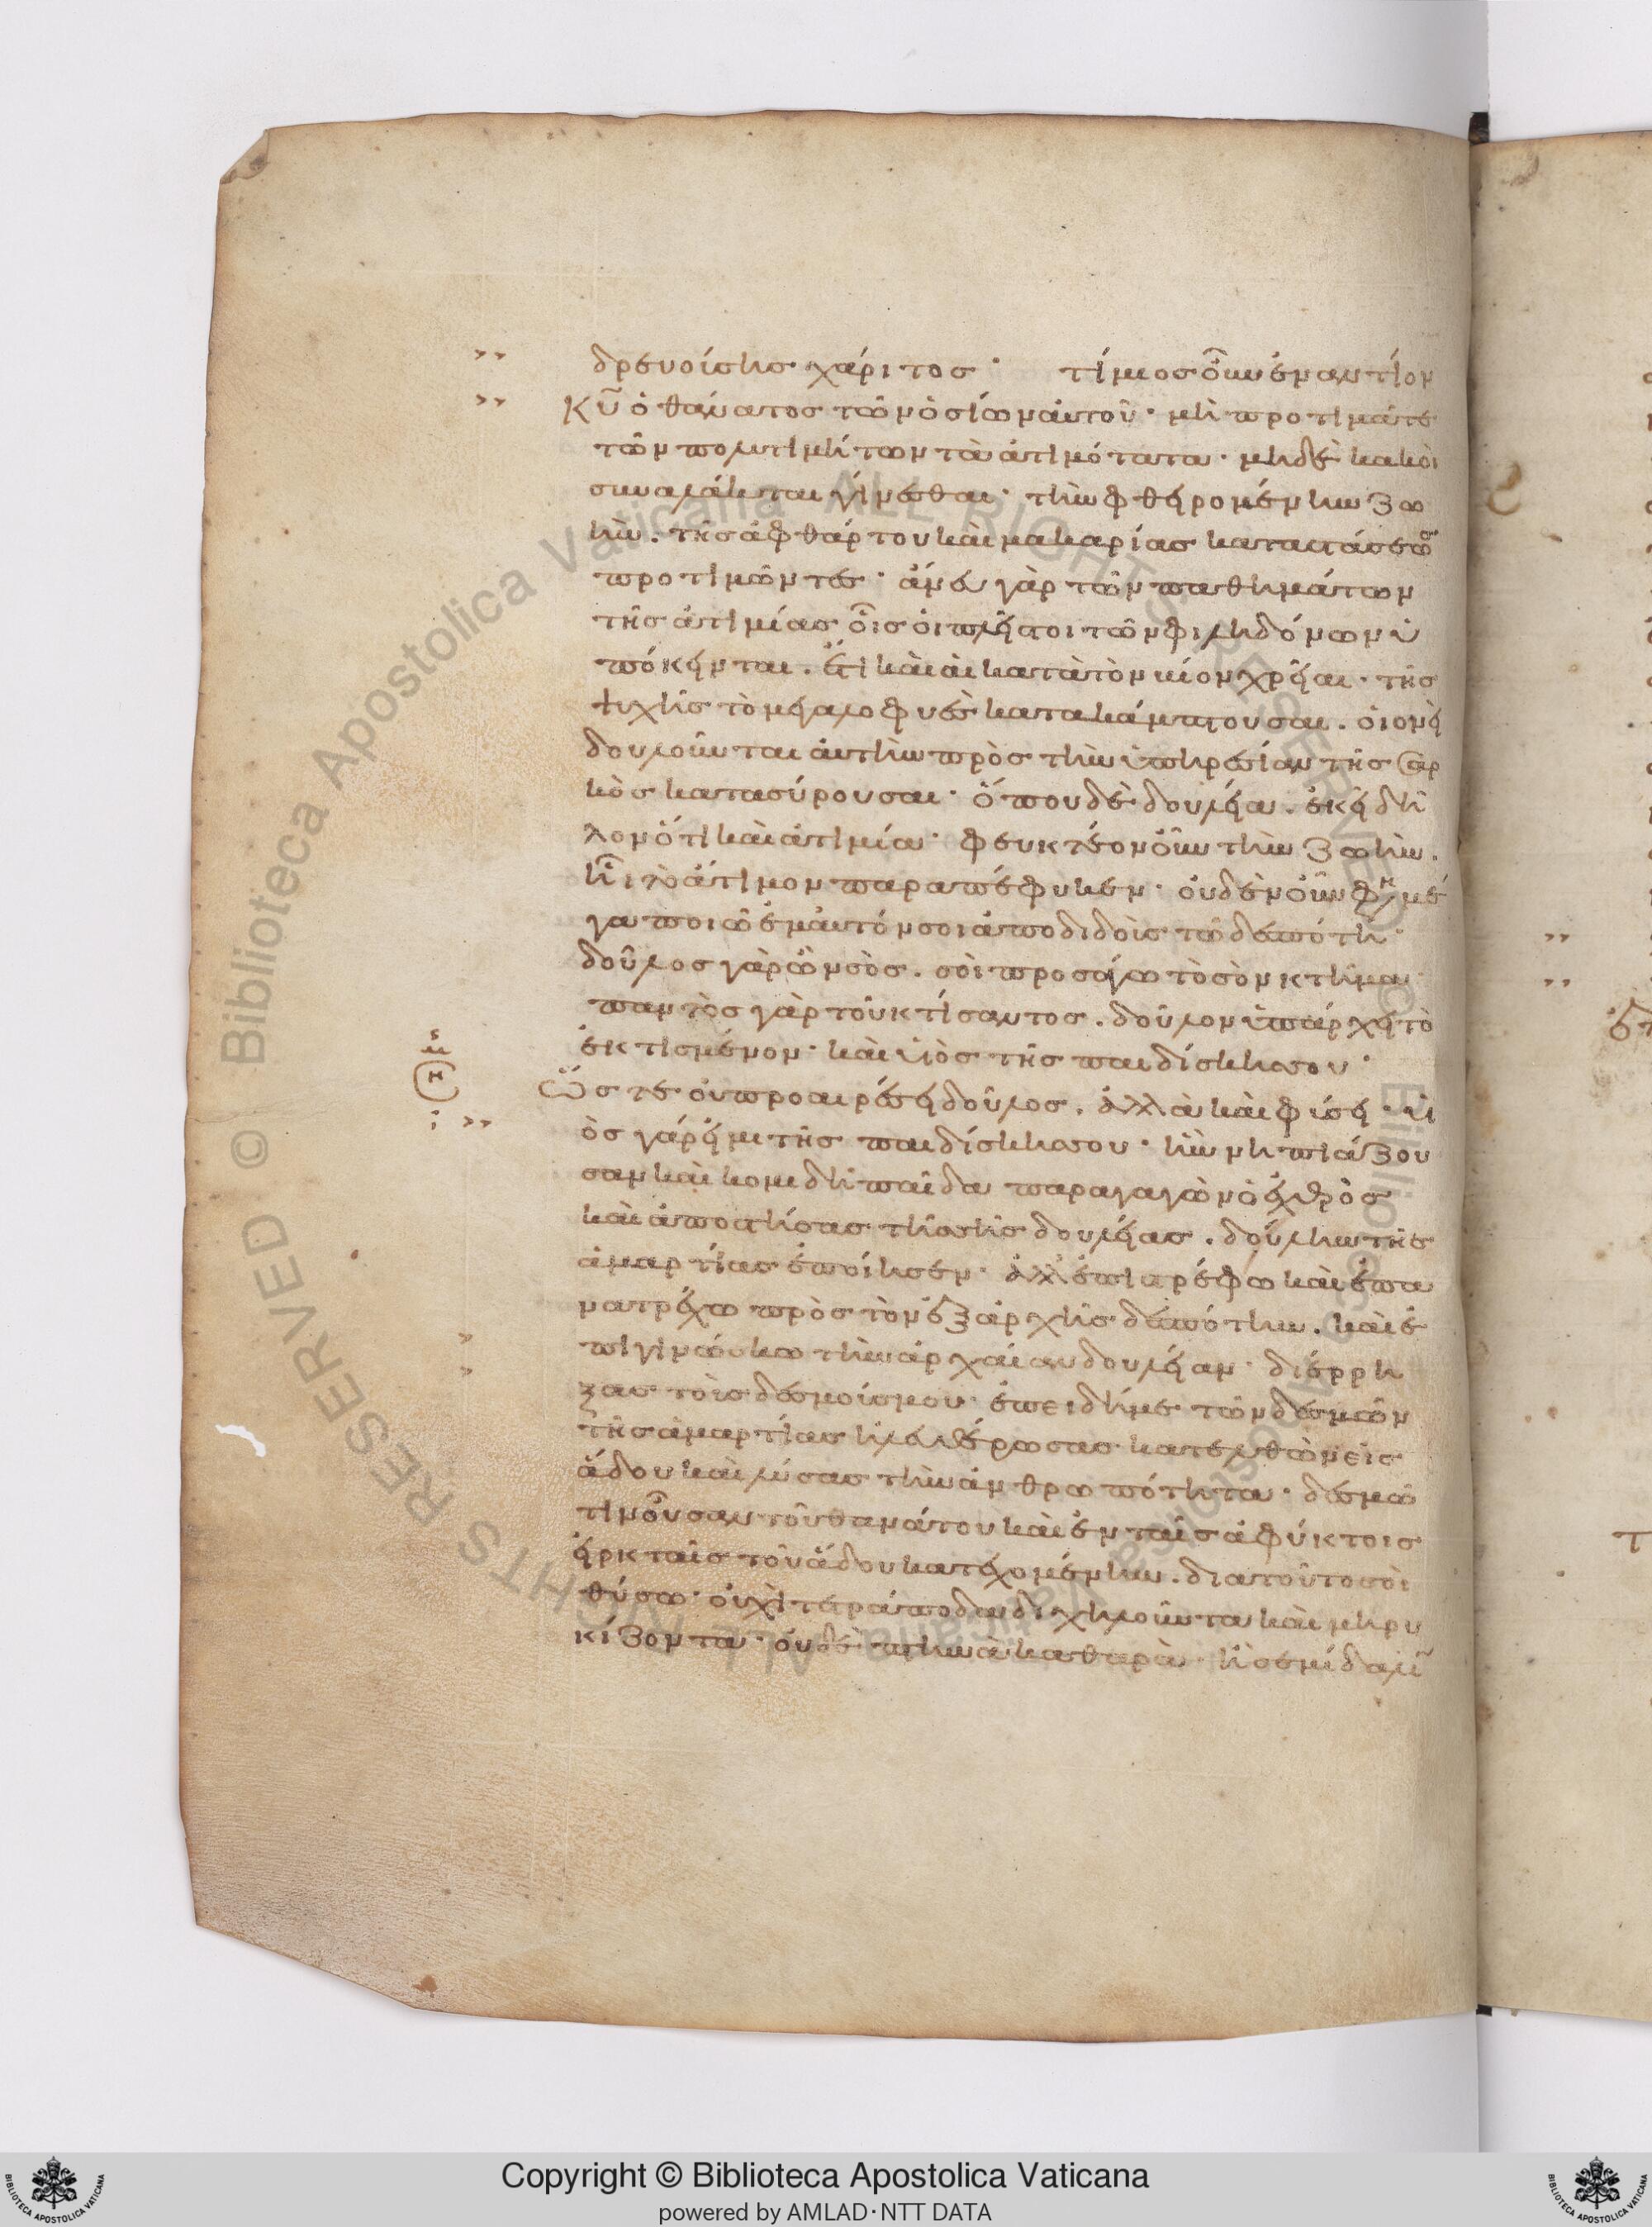 δρευούσης χάριτος· τίμιος οὖν ἐναντίον
κυ ὁ θάνατος τῶν ὁσίων αὐτοῦ· μὴ προτιμᾶτε
τῶν πολυτιμήτων τὰ ἀτιμότατα· μηδὲ κακοὶ
συναλάκται γίνεσθαι· τὴν φθειρομένην ζω
ὴν. τῆς ἀφθάρτου καὶ μακαρίας καταστάσεως
προτιμῶντες· ἄνευ γὰρ τῶν παθημάτων
τῆς ἀτιμίας οἷς οἱ πλεῖστοι τῶν φιληδόνων ὑ
πόκεινται. ἔτι καὶ αἱ κατὰ τὸν βίον χρεῖαι· τῆς
ψυχῆς τὸ μεγαλοφυὲς κατακάμπτουσαι. οἱονεὶ
δουλοῦνται αὐτὴν πρὸς τὴν ὑπηρεσίαν τῆς σαρ
κὸς κατασύρουσαι· ὅπου δὲ δουλεία. ἐκεῖ δῆ
λον ὅτι καὶ ἀτιμία· φευκτέον οὖν τὴν ζωὴν.
ᾗ τὸ ἄτιμον παραπέφυκεν· οὐδὲν οὖν φη μέ
γα ποιῶ ἐμαυτόν σοι ἀποδιδοὺς τῶ δεσπότη·
δοῦλος γὰρ ὢν σὸς. σοὶ προσάγω τὸ σὸν κτῆμα
παντὸς γὰρ τοῦ κτίσαντος. δοῦλον ὑπάρχει τὸ
ἐκτισμένον· καὶ υἱὸς τῆς παιδίσκης σου·
Ὥστε οὐ προαιρέσει δοῦλος. ἀλλὰ καὶ φύσει· υἱ
ὸς γάρ εἰμι τῆς παιδίσκης σου· ἣν νηπιάζου
σαν καὶ κομιδῆ παῖδα παραγαγὼν ὁ ἐχθρὸς
καὶ ἀποστήσας τῆς σῆς δουλείας. δούλην τῆς
ἁμαρτίας ἐποίησεν· ἀλλ' ἐπιστρέφω καὶ ἐπα
νατρέχω πρὸς τὸν ἐξ ἀρχῆς δεσπότην. καὶ ἐ
πιγινώσκω τὴν ἀρχαίαν δουλείαν· διέρρη
ξας τοὺς δεσμούς μου· ἐπειδή με τῶν δεσμῶν
τῆς ἁμαρτίας ἠλευθέρωσας κατελθὼν εἰς
ἅδου καὶ λύσας τὴν ἀνθρωπότητα· δεσμῶ
τιν οὖσαν τοῦ θανάτου καὶ ἐν ταῖς ἀφύκτοις
εἱρκταῖς τοῦ ἅδου κατεχομένην. διὰ τοῦτο σοὶ
θύσω· οὐχὶ τετράποδα διχηλοῦντα καὶ μηρυ
κίζοντα· οὐδὲ πτηνὰ καθαρὰ· ἢ σεμίδαλιν
Copyright © Biblioteca Apostolica Vaticana
powered by AMLAD·NTT DATA